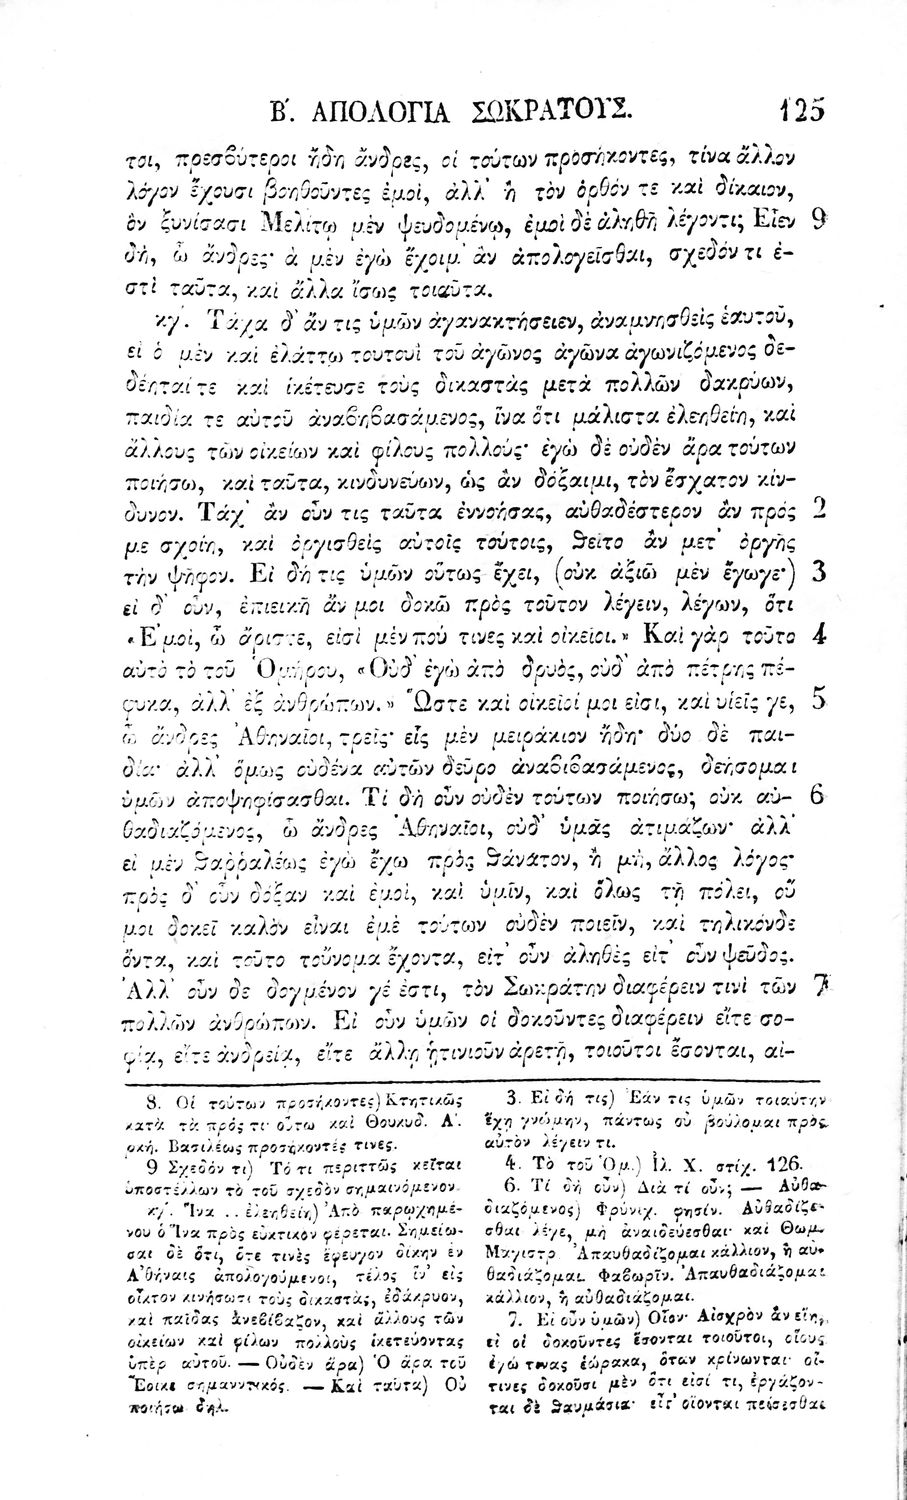 Β΄. ΑΠΟΛΟΓΙΑ ΣΩΚΡΑΤΟΥΣ. 125
τοι, πρεσβύτεροι ἤδη ἄνδρες, οἱ τούτων προσήκοντες, τίνα ἄλλον
λόγον ἔχουσι βοηθοῦντες ἐμοὶ, ἀλλ' ἢ τὸν ὀρθόν τε καὶ δίκαιον,
ὃν ξυνίσασι Μελίτῳ μὲν ψευδομένῳ, ἐμοὶ δὲ ἀληθῆ λέγοντι; Εἶεν 9
δὴ, ὦ ἄνδρες· ἃ μὲν ἐγὼ ἔχοιμ' ἂν ἀπολογεῖσθαι, σχεδόν τι ἐ-
στὶ ταῦτα, καὶ ἄλλα ἴσως τοιαῦτα.
κγ΄. Τάχα δ' ἄν τις ὑμῶν ἀγανακτήσειεν, ἀναμνησθεὶς ἑαυτοῦ,
εἰ ὁ μὲν καὶ ἐλάττω τουτουὶ τοῦ ἀγῶνος ἀγῶνα ἀγωνιζόμενος ἐδε-
δέηταί τε καὶ ἱκέτευσε τοὺς δικαστὰς μετὰ πολλῶν δακρύων,
παιδία τε αὑτοῦ ἀναβηβασάμενος, ἵνα ὅτι μάλιστα ἐλεηθείη, καὶ
ἄλλους τῶν οἰκείων καὶ φίλους πολλούς· ἐγὼ δὲ οὐδὲν ἄρα τούτων
ποιήσω, καὶ ταῦτα, κινδυνεύων, ὡς ἂν δόξαιμι, τὸν ἔσχατον κίν-
δυνον. Τάχ' ἂν οὖν τις ταῦτα ἐννοήσας, αὐθαδέστερον ἂν πρός 2
με σχοίη, καὶ ὀργισθεὶς αὐτοῖς τούτοις, θεῖτο ἂν μετ' ὀργῆς
τὴν ψῆφον. Εἰ δή τις ὑμῶν οὕτως ἔχει, (οὐκ ἀξιῶ μὲν ἔγωγε·) 3
εἰ δ' οὖν, ἐπιεικῆ ἄν μοι δοκῶ πρὸς τοῦτον λέγειν, λέγων, ὅτι
«Ἐμοὶ, ὦ ἄριστε, εἰσὶ μέν πού τινες καὶ οἰκεῖοι.» Καὶ γὰρ τοῦτο 4
αὐτὸ τὸ τοῦ Ὁμήρου, «Οὐδ' ἐγὼ ἀπὸ δρυὸς, οὐδ' ἀπὸ πέτρης πέ-
φυκα, ἀλλ' ἐξ ἀνθρώπων.» Ὥστε καὶ οἰκεῖοί μοι εἰσι, καὶ υἱεῖς γε, 5
ὦ ἄνδρες Ἀθηναῖοι, τρεῖς· εἷς μὲν μειράκιον ἤδη· δύο δὲ παι-
δία· ἀλλ' ὅμως οὐδένα αὐτῶν δεῦρο ἀναβιβασάμενος, δεήσομαι
ὑμῶν ἀποψηφίσασθαι. Τί δὴ οὖν οὐδὲν τούτων ποιήσω; οὐκ αὐ- 6
θαδιαζόμενος, ὦ ἄνδρες Ἀθηναῖοι, οὐδ' ὑμᾶς ἀτιμάζων· ἀλλ'
εἰ μὲν θαῤῥαλέως ἐγὼ ἔχω πρὸς θάνατον, ἢ μὴ, ἄλλος λόγος·
πρὸς δ' οὖν δόξαν καὶ ἐμοὶ, καὶ ὑμῖν, καὶ ὅλως τῇ πόλει, οὔ
μοι δοκεῖ καλὸν εἶναι ἐμὲ τούτων οὐδὲν ποιεῖν, καὶ τηλικόνδε
ὄντα, καὶ τοῦτο τοὔνομα ἔχοντα, εἴτ' οὖν ἀληθὲς εἴτ' οὖν ψεῦδος.
Ἀλλ' οὖν δε δογμένον γέ ἐστι, τὸν Σωκράτην διαφέρειν τινὶ τῶν 7
πολλῶν ἀνθρώπων. Εἰ οὖν ὑμῶν οἱ δοκοῦντες διαφέρειν εἴτε σο-
φίᾳ, εἴτε ἀνδρείᾳ, εἴτε ἄλλῃ ᾑτινιοῦν ἀρετῇ, τοιοῦτοι ἔσονται, αἰ-
8. Οἱ τούτων προσήκοντες) Κτητικῶς
κατὰ τὰ πρός τι οὕτω καὶ Θουκυδ. Α΄.
ρκή. Βασιλέως προσήκοντές τινες.
9 Σχεδόν τι) Τό τι περιττῶς κεῖται
ὑποστέλλων τὸ τοῦ σχεδὸν σημαινόμενον.
κγ΄. Ἵνα .. ἐλεηθείη) Ἀπὸ παρῳχημέ-
νου ὁ Ἵνα πρὸς εὐκτικὸν φέρεται. Σημείω-
σαι δὲ ὅτι, ὅτε τινὲς ἔφευγον δίκην ἐν
Ἀθήναις ἀπολογούμενοι, τέλος ἵν' εἰς
οἶκτον κινήσωσι τοὺς δικαστὰς, ἐδάκρυον,
καὶ παῖδας ἀνεβίβαζον, καὶ ἄλλους τῶν
οἰκείων καὶ φίλων πολλοὺς ἱκετεύοντας
ὑπὲρ αὐτοῦ. — Οὐδὲν ἄρα) Ὁ ἄρα τοῦ
Ἔοικε σημαντικός. — Καὶ ταῦτα) Οὐ
ποιήσω δηλ.
3. Εἰ δή τις) Ἐάν τις ὑμῶν τοιαύτην
ἔχῃ γνώμην, πάντως οὐ βούλομαι πρὸς
αὐτὸν λέγειν τι.
4. Τὸ τοῦ Ὁμ.) Ἰλ. Χ. στίχ. 126.
6. Τί δὴ οὖν) Διὰ τί οὖν; — Αὐθα-
διαζόμενος) Φρύνιχ. φησίν. Αὐθαδίζε-
σθαι λέγε, μὴ ἀναιδεύεσθαι· καὶ Θωμ.
Μαγιστρ. Ἀπαυθαδίζομαι κάλλιον, ἢ αὐ-
θαδιάζομαι. Φαβωρῖν. Ἀπαυθαδιάζομαι
κάλλιον, ἢ αὐθαδιάζομαι.
7. Εἰ οὖν ὑμῶν) Οἷον· Αἰσχρὸν ἂν εἴη,
εἰ οἱ δοκοῦντες ἔσονται τοιοῦτοι, οἵους
ἐγώ τινας ἑώρακα, ὅταν κρίνωνται· οἵ-
τινες δοκοῦσι μὲν ὅτι εἰσί τι, ἐργάζον-
ται δὲ θαυμάσια· εἶτ' οἴονται πείσεσθαι